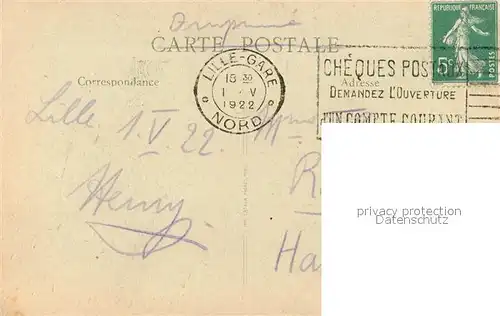 Imprimé
CARTE POSTALE
REPUBLIQUE FRANÇAISE
5c
POSTES
LILLE-GARE
15 30
1 - V
1922
NORD
CHÈQUES POST
DEMANDEZ L'OUVERTURE
UN COMPTE COURANT
Correspondance
Adresse
Lille, 1.V.22.
Henry
Ha
privacy protection
Datenschutz